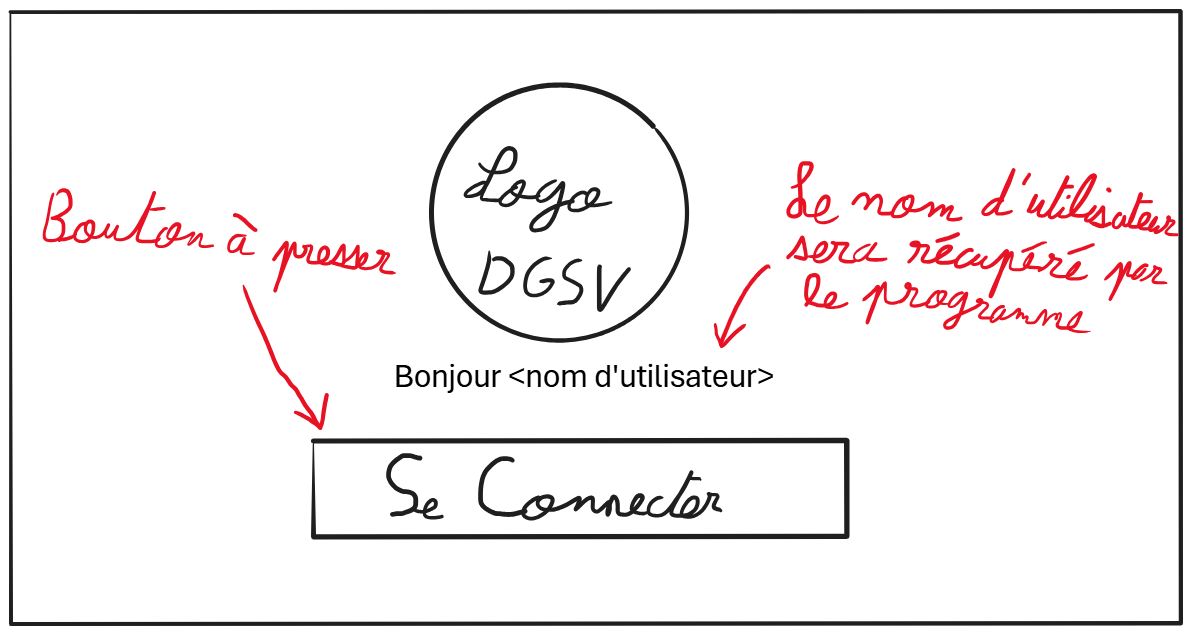 Logo
DGSV
Bouton à presser
Le nom d'utilisateur
sera récupéré par
le programme
Bonjour <nom d'utilisateur>
Se Connecter